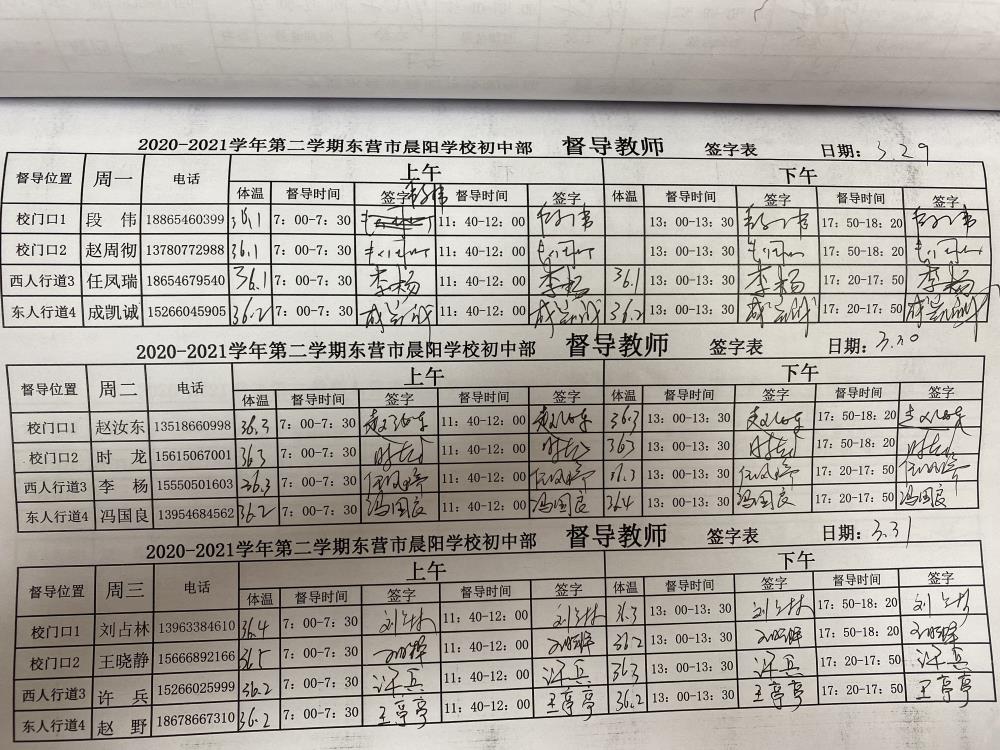 2020-2021学年第二学期东营市晨阳学校初中部 督导教师 签字表 日期: 3.29
督导位置 周一 电话 上午 下午
体温 督导时间 签字 督导时间 签字 体温 督导时间 签字 督导时间 签字
校门口1 段 伟 18865460399 36.1 7: 00-7: 30 11: 40-12: 00 13: 00-13: 30 17: 50-18: 20
校门口2 赵周彻 13780772988 36.1 7: 00-7: 30 11: 40-12: 00 13: 00-13: 30 17: 50-18: 20
西人行道3 任凤瑞 18654679540 36.1 7: 00-7: 30 李杨 11: 40-12: 00 李杨 36.1 13: 00-13: 30 李杨 17: 20-17: 50 李杨
东人行道4 成凯诚 15266045905 36.2 7: 00-7: 30 成凯诚 11: 40-12: 00 成凯诚 36.2 13: 00-13: 30 成凯诚 17: 20-17: 50 成凯诚
2020-2021学年第二学期东营市晨阳学校初中部 督导教师 签字表 日期: 3.30
督导位置 周二 电话 上午 下午
体温 督导时间 签字 督导时间 签字 体温 督导时间 签字 督导时间 签字
校门口1 赵汝东 13518660998 36.3 7: 00-7: 30 赵汝东 11: 40-12: 00 赵汝东 36.3 13: 00-13: 30 赵汝东 17: 50-18: 20 赵汝东
校门口2 时 龙 15615067001 36.3 7: 00-7: 30 时龙 11: 40-12: 00 时龙 363 13: 00-13: 30 时龙 17: 50-18: 20 时龙
西人行道3 李 杨 15550501603 36.3 7: 00-7: 30 11: 40-12: 00 13: 00-13: 30 17: 20-17: 50
东人行道4 冯国良 13954684562 36.2 7: 00-7: 30 冯国良 11: 40-12: 00 冯国良 36.4 13: 00-13: 30 冯国良 17: 20-17: 50 冯国良
2020-2021学年第二学期东营市晨阳学校初中部 督导教师 签字表 日期: 3.31
督导位置 周三 电话 上午 下午
体温 督导时间 签字 督导时间 签字 体温 督导时间 签字 督导时间 签字
校门口1 刘占林 13963384610 36.4 7: 00-7: 30 刘占林 11: 40-12: 00 刘占林 36.3 13: 00-13: 30 刘占林 17: 50-18: 20 刘占林
校门口2 王晓静 15666892166 36.5 7: 00-7: 30 11: 40-12: 00 36.2 13: 00-13: 30 17: 50-18: 20
西人行道3 许 兵 15266025999 36.2 7: 00-7: 30 许兵 11: 40-12: 00 许兵 36.3 13: 00-13: 30 许兵 17: 20-17: 50 许兵
东人行道4 赵 野 18678667310 36.2 7: 00-7: 30 王亭亭 11: 40-12: 00 王亭亭 36.2 13: 00-13: 30 王亭亭 17: 20-17: 50 王亭亭